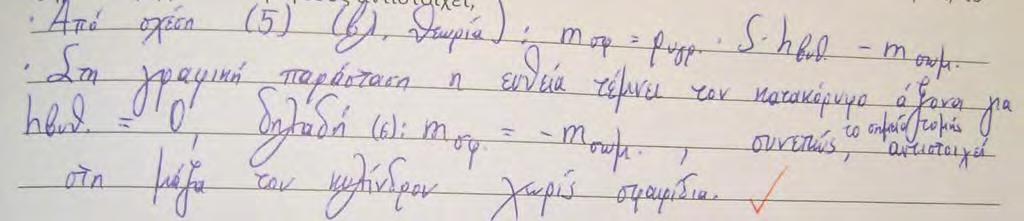 · Από σχέση (5) (β. θεωρία): mσφ = ρυγρ. · S · hβυθ. - mσωμ.
· Στη γραφική παράσταση η ευθεία τέμνει τον κατακόρυφο άξονα για
hβυθ. = 0, δηλαδή (6): mσφ. = -mσωμ. , συνεπώς, το σημείο τομής αντιστοιχεί
στη μάζα του κυλίνδρου χωρίς σφαιρίδια. ✓